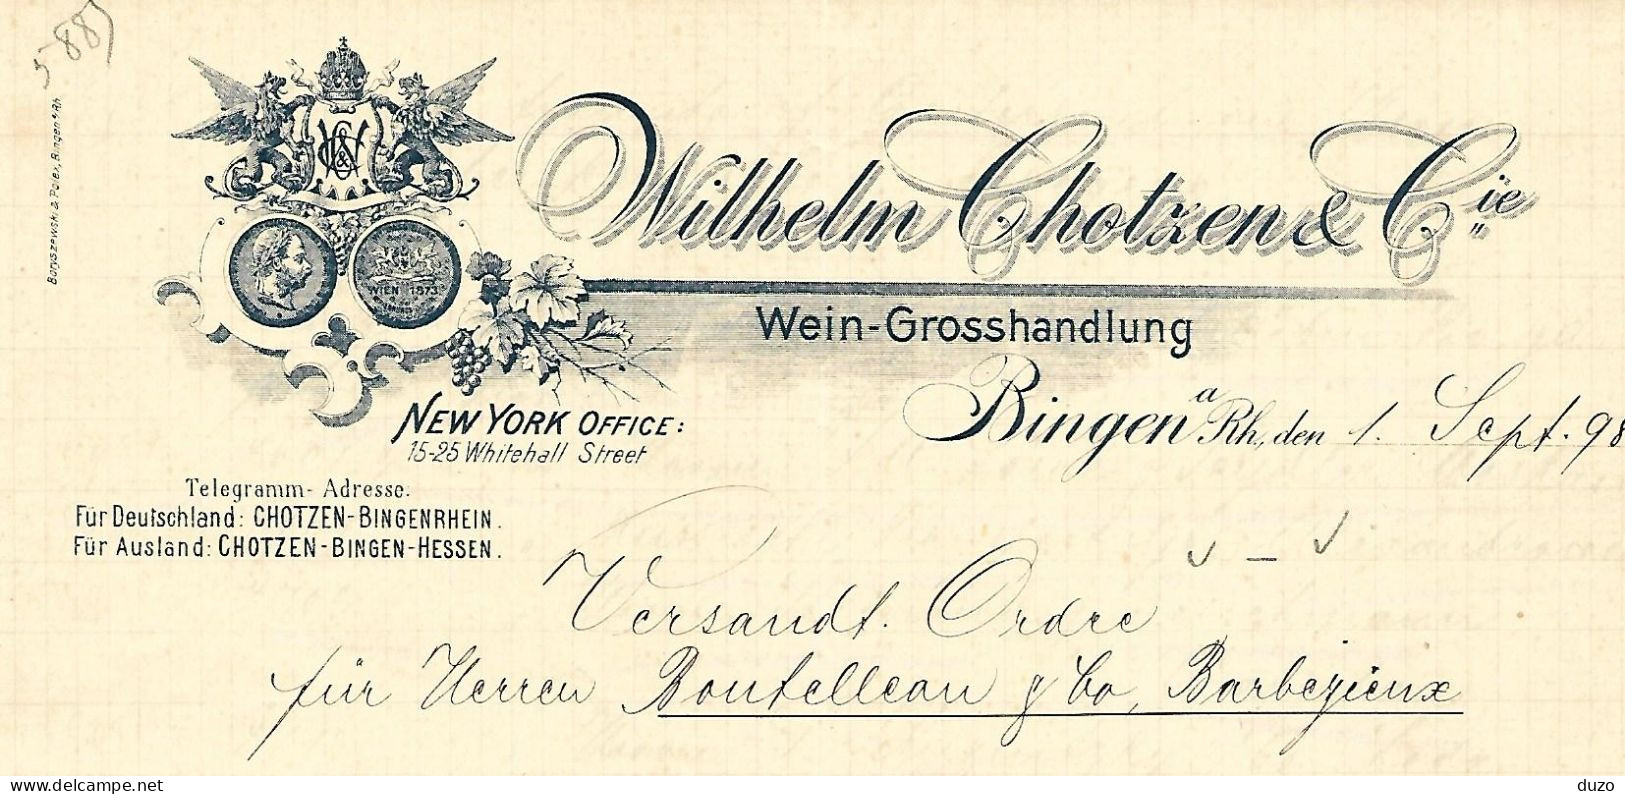 5887
Boryszewski & Polex, Bingen a/Rh
W & C
WIEN 1873
Wilhelm Chotzen & Cie
Wein-Grosshandlung
Bingen a Rh, den 1. Sept. 98
NEW YORK OFFICE:
15-25 Whitehall Street
Telegramm-Adresse:
Für Deutschland: CHOTZEN-BINGENRHEIN.
Für Ausland: CHOTZEN-BINGEN-HESSEN.
Versandt. Ordre
für Herren Boutelleau & Co, Barbezieux
www.delcampe.net
duzo